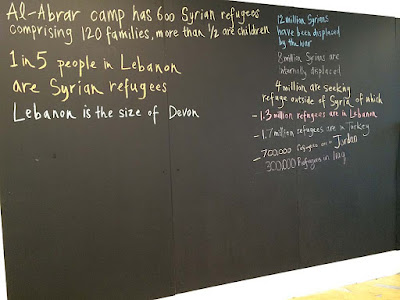 Al-Abrar camp has 600 Syrian refugees
comprising 120 families, more than 1/2 are children
1 in 5 people in Lebanon
are Syrian refugees
Lebanon is the size of Devon
12 million Syrians
have been displaced
by the war
8 million Syrians are
internally displaced
4 million are seeking
refuge outside of Syria of which
- 1.3 million refugees are in Lebanon
- 1.7 million refugees are in Turkey
- 700,000 refugees are in Jordan
300,000 Refugees in Iraq